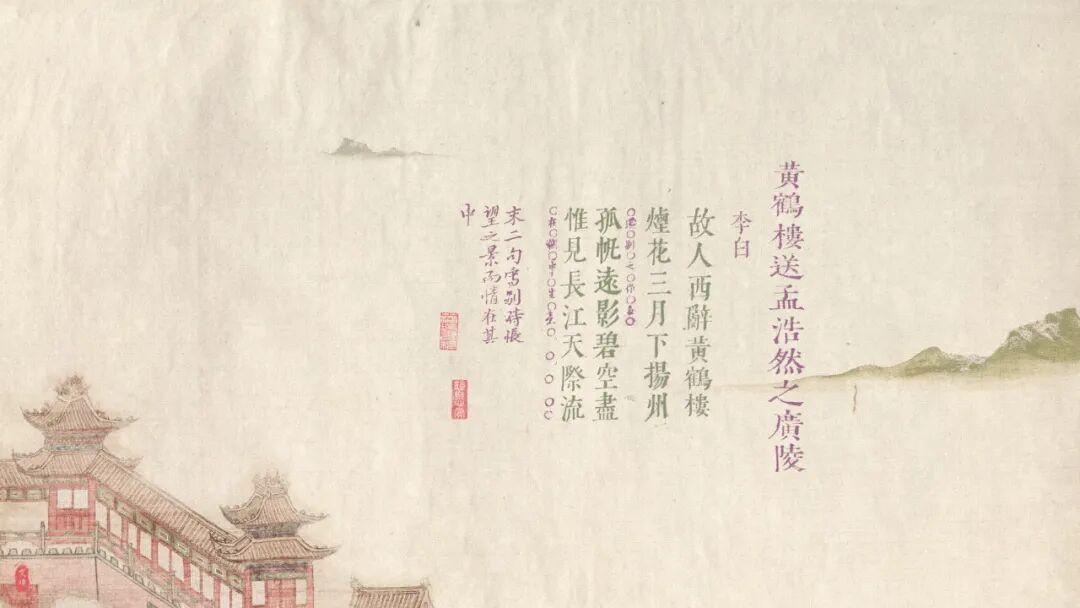 黃鶴樓送孟浩然之廣陵
李白
故人西辭黃鶴樓
煙花三月下揚州
孤帆遠影碧空盡
惟見長江天際流
末二句寫別時悵
望之景而情在其
中